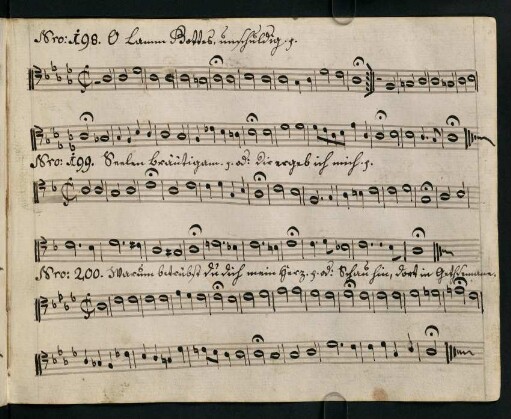 Nro: 198. O Lamm Gottes, unschuldig. p.
Nro: 199. Seelen bräutigam. p. od: dir ergeb ich mich. p.
Nro: 200. Warum betrübst du dich mein Herz. p. od: Schau hin, dort in Gethsemane.